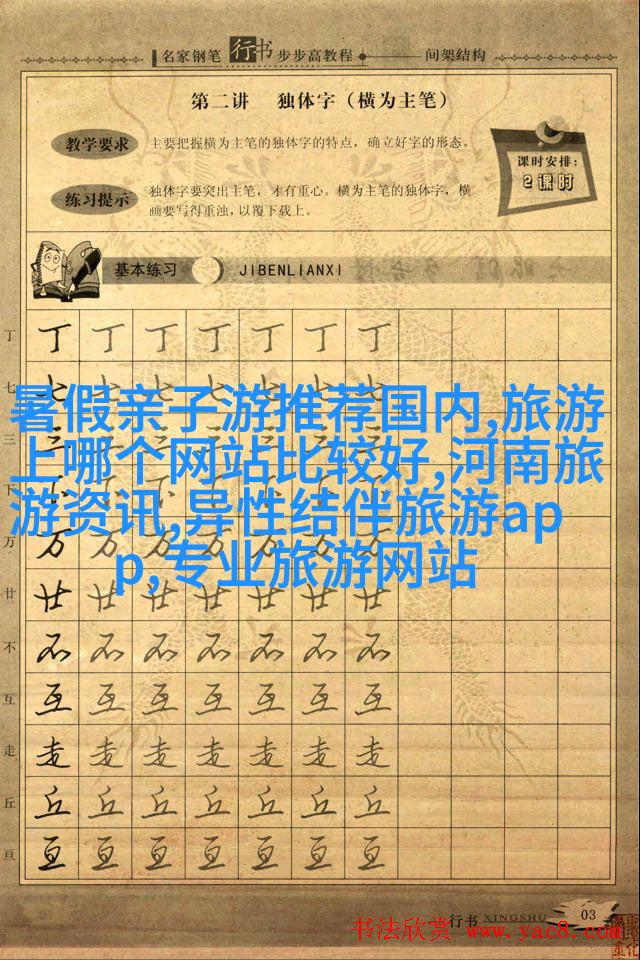 名家钢笔 行书 步步高教程 间架结构
第二讲 独体字（横为主笔）
教学要求 主要把握横为主笔的独体字的特点，确立好字的形态。
课时安排：
2课时
练习提示 独体字要突出主笔，才有重心。横为主笔的独体字，横
画要写得重浊，以覆下载上。
基本练习 JIBENLIANXI
丁 丁 丁 丁 丁 丁 丁 丁
七 七 七 七 七 七 七 七
暑假亲子游推荐国内,旅游
上哪个网站比较好,河南旅
游资讯,异性结伴旅游ap
p,专业旅游网站
三 三 三 三 三 三 三 三
下
万 万 万 万 万 万 万 万
廿 廿 廿 廿 廿 廿 廿 廿
不 不 不 不 不 不 不 不
互 互 互 互 互 互 互 互
走 走 走 走 走 走 走 走
丘 丘 丘 丘 丘 丘 丘 丘
亘 亘 亘 亘 亘 亘 亘 亘
行书 XINGSHU 03
书法欣赏 www.yac8.com